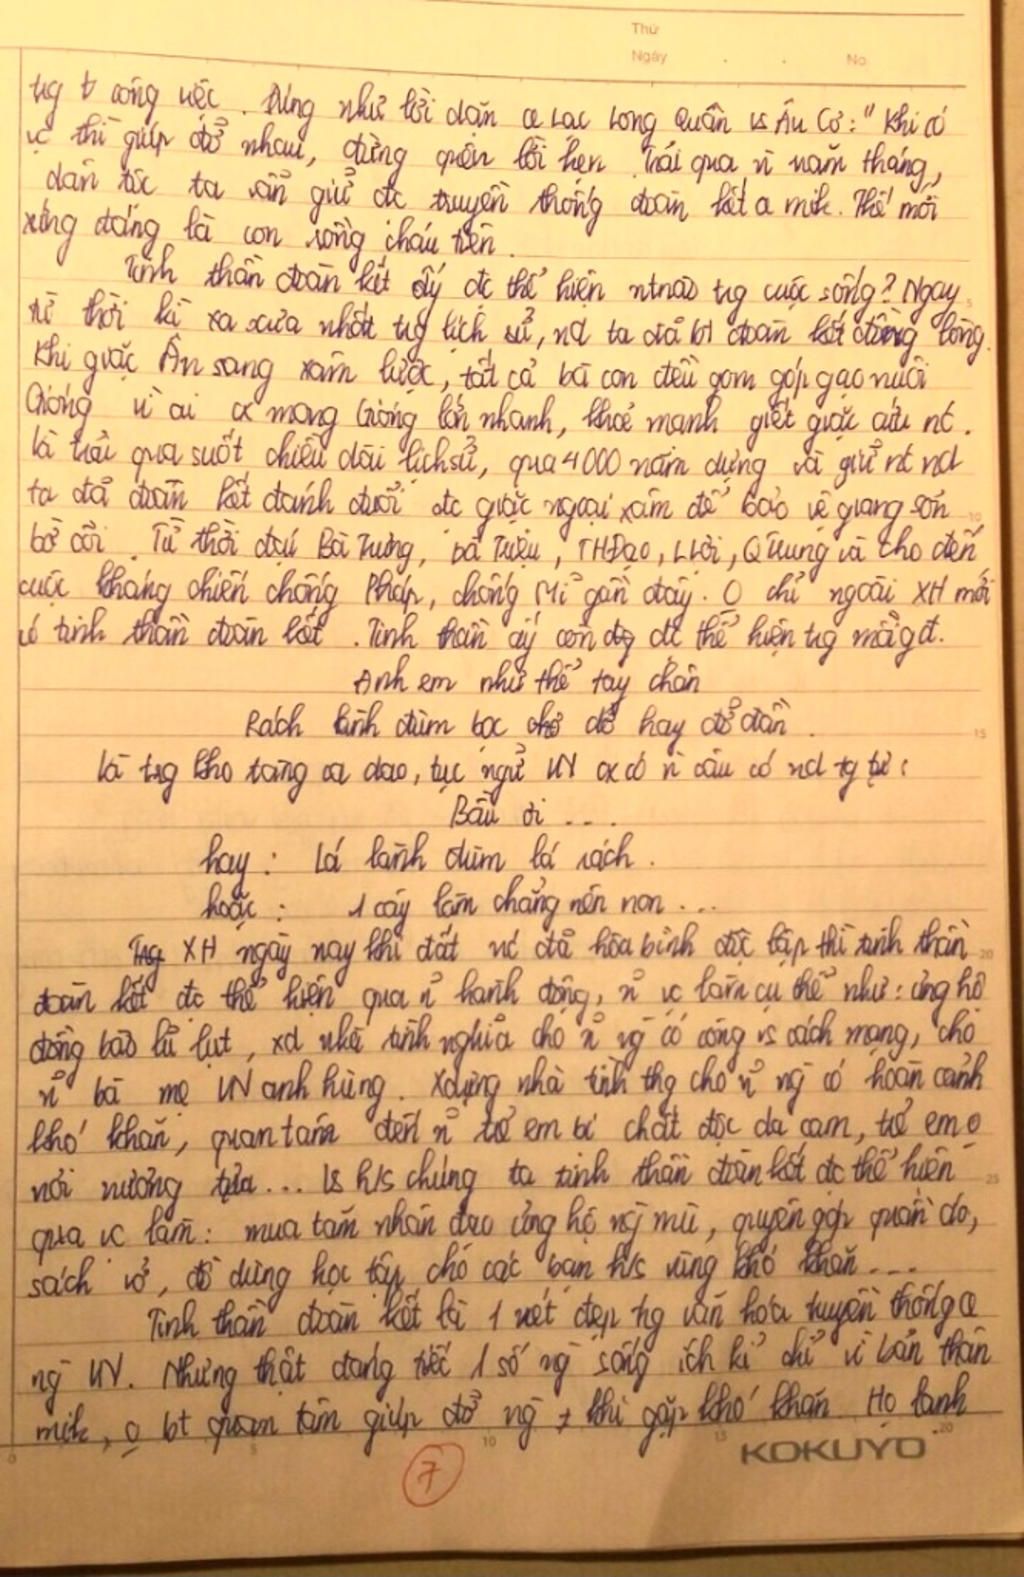 Thứ
Ngày . . No.
tṛg t công việc. Đúng như lời dặn cụ Lạc Long Quân vs Âu Cơ: " Khi có
vc thì giúp đỡ nhau, đừng quên lời hẹn. Trải qua n năm tháng,
dân tộc ta vẫn giữ đc truyền thống đoàn kết a mik. Thế mới
xứng đáng là con rồng cháu tiên.
Tinh thần đoàn kết ấy đc thể hiện ntnào tṛg cuộc sống? Ngay
từ thời kì xa xưa nhất tṛg lịch sử, nd ta đã bt đoàn kết đồng lòng.
Khi giặc Ân sang xâm lược, tất cả bà con đều gom góp gạo nuôi
Gióng vì ai cx mong Gióng lớn nhanh, khoẻ mạnh giết giặc cứu nc.
Và trải qua suốt chiều dài lịch sử, qua 4000 năm dựng và giữ nc nd
ta đã đoàn kết đánh đuổi đc giặc ngoại xâm để bảo vệ giang sơn
bờ cõi. Từ thời đại Bà Trưng, bà Triệu, THĐạo, LLợi, QTrung và cho đến
cuộc kháng chiến chống Pháp, chống Mĩ gần đây. O chỉ ngoài XH mới
có tinh thần đoàn kết. Tinh thần ấy còn đc thể hiện tṛg mỗi gđ.
Anh em như thể tay chân
Rách lành đùm bọc dở hay đỡ đần.
Và trg kho tàng ca dao, tục ngữ VN cx có n câu có nd tg tự:
Bầu ơi ...
hay: Lá lành đùm lá rách.
hoặc: 1 cây làm chẳng nên non ...
XH ngày nay khi đất nc đã hòa bình độc lập thì tinh thần
đoàn kết đc thể hiện qua n~ hành động, n~ vc làm cụ thể như: ủng hộ
đồng bào lũ lụt, xd nhà tình nghĩa cho n~ ng có công vs cách mạng, cho
n~ bà mẹ VN anh hùng. Xdựng nhà tình thg cho n~ ng có hoàn cảnh
khó khăn, quan tâm đến n~ trẻ em bị chất độc da cam, trẻ em o
nơi nương tựa... Vs h/s chúng ta tinh thần đoàn kết đc thể hiện
qua vc làm: mua tăm nhân đạo ủng hộ ng mù, quyên góp quần áo,
sách vở, đồ dùng học tập cho các bạn h/s vùng khó khăn ...
Tinh thần đoàn kết là 1 nét đẹp tṛg văn hóa truyền thống
ng VN. Nhưng thật đáng tiếc 1 số ng sống ích kỉ chỉ vì bản thân
mik, o bt quan tâm giúp đỡ ng ≠ khi gặp khó khăn. Họ lanh
7
KOKUYO